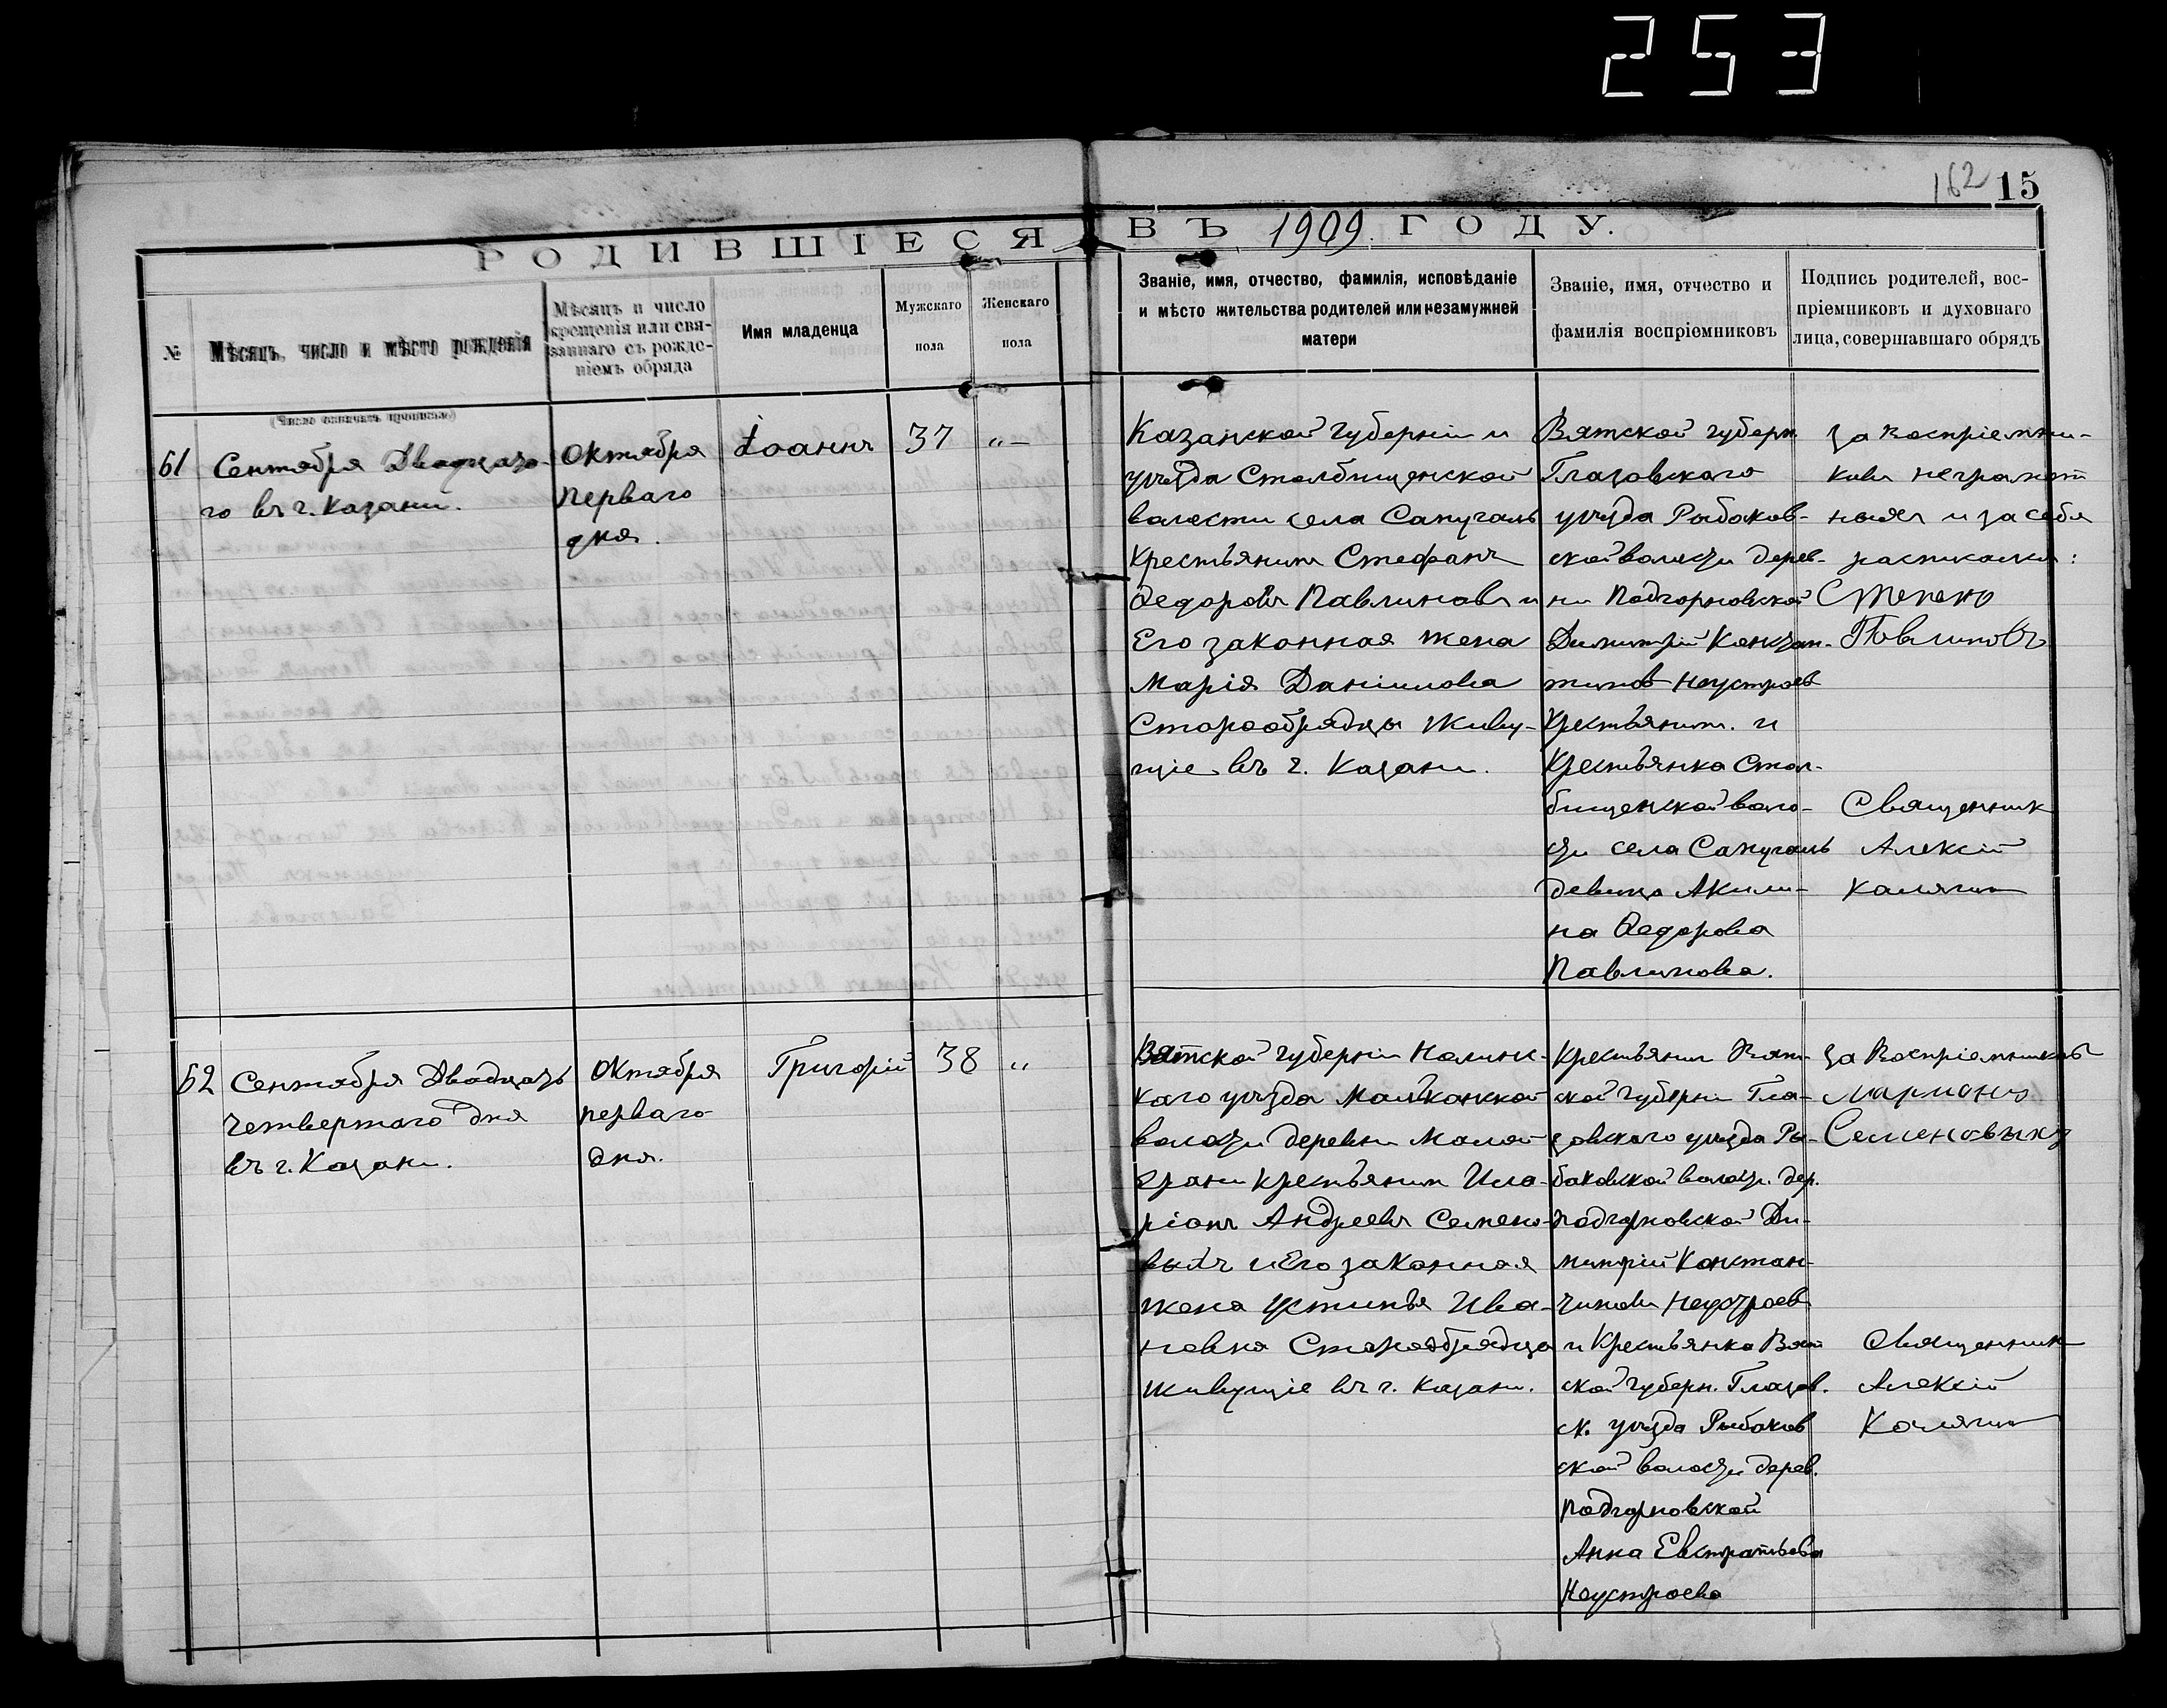 253
162 15
РОДИВШІЕСЯ ВЪ 1909 ГОДУ.
№
Мѣсяцъ, число и мѣсто рожденія
(Число означать прописью)
Мѣсяцъ и число
крещенія или свя-
заннаго съ рожде-
ніемъ обряда
Имя младенца
Мужскаго
пола
Женскаго
пола
Званіе, имя, отчество, фамилія, исповѣданіе
и мѣсто жительства родителей или незамужней
матери
Званіе, имя, отчество и
фамилія воспріемниковъ
Подпись родителей, вос-
пріемниковъ и духовнаго
лица, совершавшаго обрядъ
61
Сентября Двадцато-
го въ г. Казани.
Октября
перваго
дня.
Іоаннъ
37
„ —
Казанской губерніи и
уѣзда Столбищенской
волости села Сапугаль
крестьянинъ Стефанъ
Ѳедоровъ Павлиновъ и
Его законная жена
Марія Даніилова
Старообрядцы живу-
щіе въ г. Казани.
Вятской губерн.
Глазовскаго
уѣзда Рыбаков-
ской волости дерев-
ни Подгорновской
Димитрій Констан-
тинов Неустроев
Крестьянин. и
Крестьянка Стол-
бищенской воло-
сти села Сапугаль
девица Акили-
на Ѳедорова
Павлинова.
за воспріемни-
ков неграмот
ныхъ и за себя
расписался:
Степанъ
Павлиновъ
Священник
Алексій
Калягин
62
Сентября Двадцать
четвертаго дня
въ г. Казани.
Октября
перваго
дня.
Григорій
38
„
Вятской губерніи Нолинс-
каго уѣзда
волости деревни Малой
грани крестьянин Ила-
ріонъ Андреевъ Семено-
выхъ и Его законная
жена Устинья Ива-
новна Старообрядцы
живущіе въ г. Казани.
Крестьянин Вят-
ской губерни Гла-
зовскаго уѣзда Ры-
баковской волости. дер.
Подгорновской Ди-
митрій Констан-
тинов Неустроев
и Крестьянка Вят
ской губерн. Глазов.
ск. уѣзда Рыбаков
ской волости дерев.
Подгорновской
Анна Евстратьева
Неустроева
за Воспріемников
Ларионъ
Семеновыхъ
Священник
Алексій
Калягин